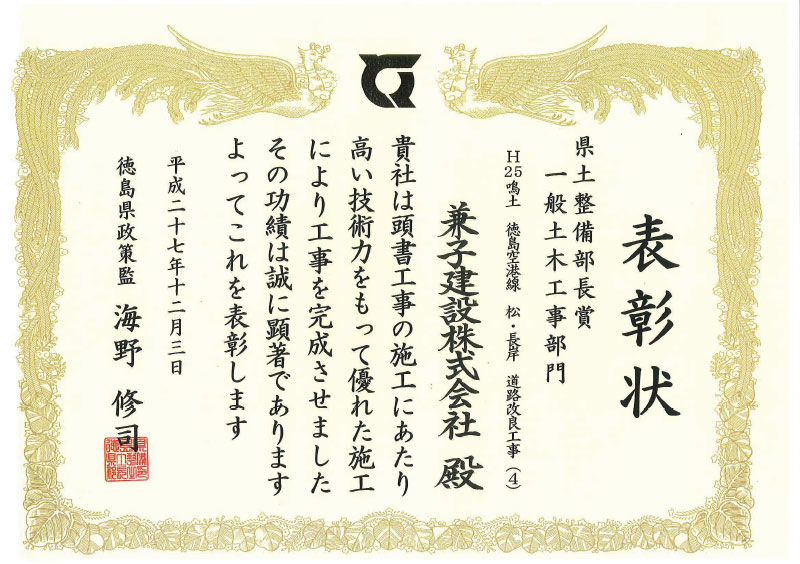 表彰状
県土整備部長賞
一般土木工事部門
H25鳴土 徳島空港線 松・長岸 道路改良工事(4)
兼子建設株式会社 殿
貴社は頭書工事の施工にあたり
高い技術力をもって優れた施工
により工事を完成させました
その功績は誠に顕著であります
よってこれを表彰します
平成二十七年十二月三日
徳島県政策監 海野修司